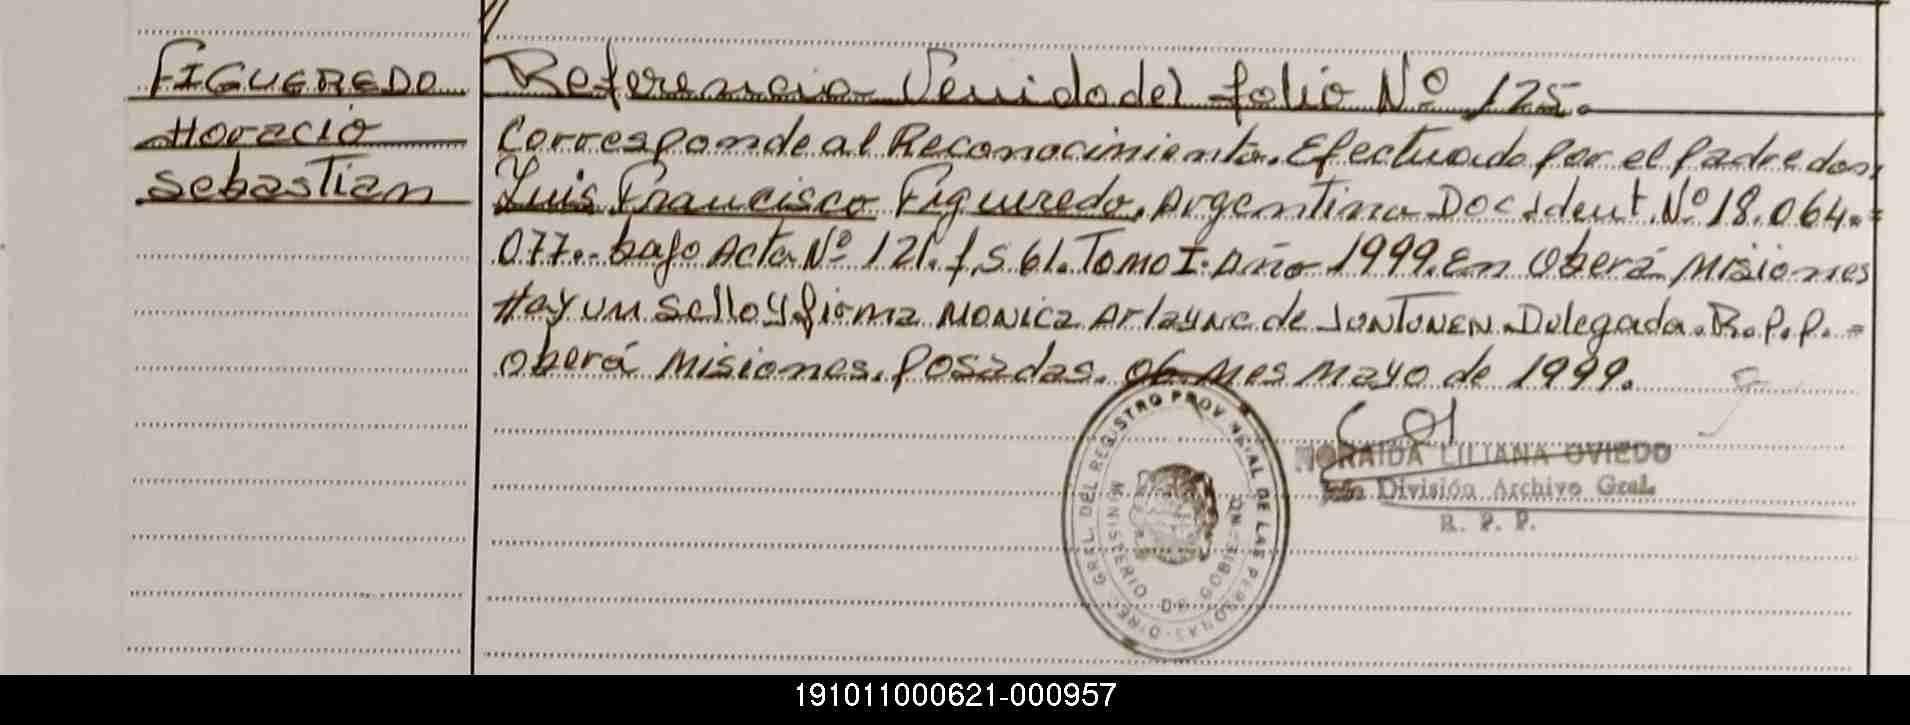 FIGUEREDO
Horacio
Sebastian
Referencia Venida del folio Nº 125.
Corresponde al Reconocimiento. Efectuado por el padre don,
Luis Francisco Figueredo, Argentina Doc Ident. Nº 18.064.=
077.- bajo Acta Nº 121. f,s 61. Tomo I. Año 1999. En Oberá Misiones
Hay un sello y firma Monica Arlayne de JONTUNEN. Delegada. R.p.p. =
oberá Misiones. Posadas. 06 Mes Mayo de 1999.
NORAIDA LILIANA OVIEDO
Jefe División Archivo Gral.
R. P. P.
DIRE. GRAL. DEL REGISTRO PROVINCIAL DE LAS PERSONAS
MINISTERIO DE GOBIERNO
191011000621-000957